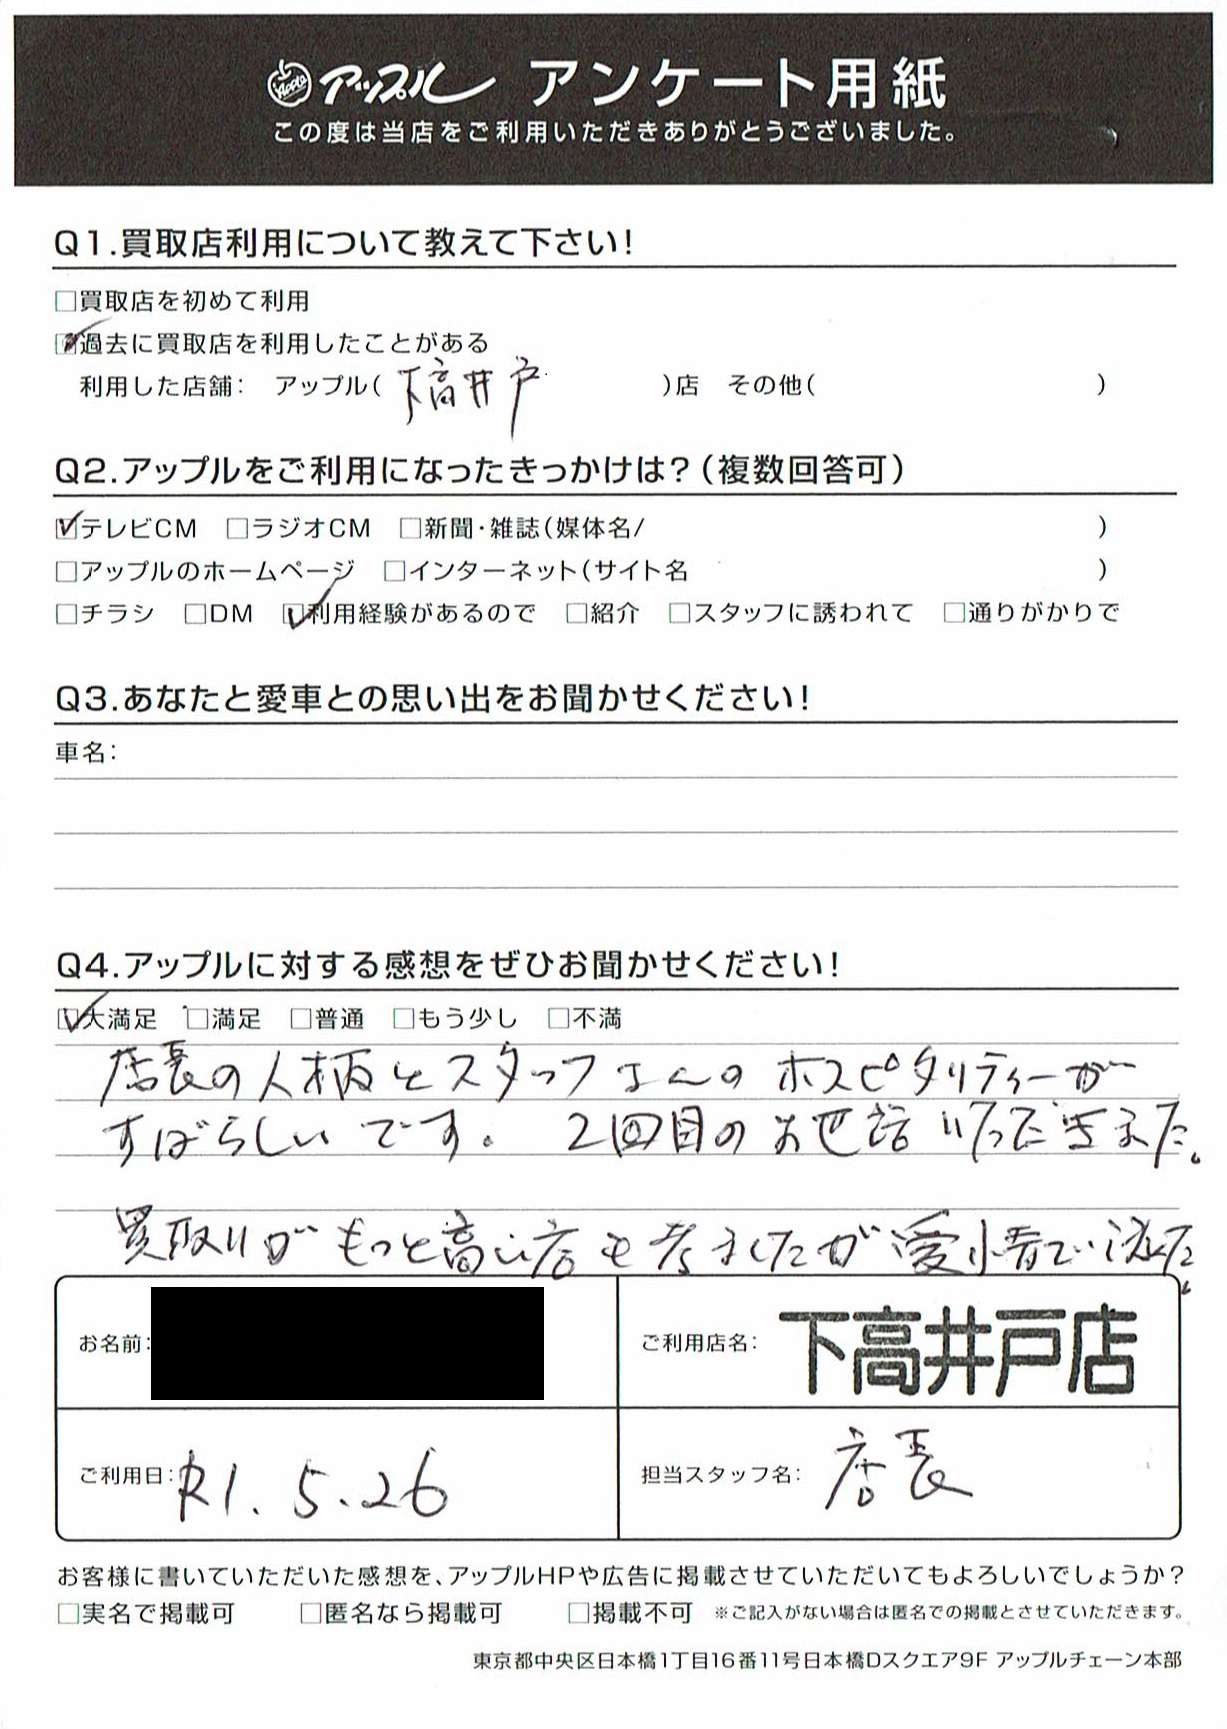 Apple アップル アンケート用紙
この度は当店をご利用いただきありがとうございました。
Q1.買取店利用について教えて下さい!
□買取店を初めて利用
☑過去に買取店を利用したことがある
利用した店舗: アップル(下高井戸)店 その他( )
Q2.アップルをご利用になったきっかけは?(複数回答可)
☑テレビCM □ラジオCM □新聞・雑誌(媒体名/ )
□アップルのホームページ □インターネット(サイト名 )
□チラシ □DM ☑利用経験があるので □紹介 □スタッフに誘われて □通りがかりで
Q3.あなたと愛車との思い出をお聞かせください!
車名:
Q4.アップルに対する感想をぜひお聞かせください!
☑大満足 □満足 □普通 □もう少し □不満
店長の人柄とスタッフさんのホスピタリティーが
すばらしいです。 2回目のお世話いただきました。
買取りがもっと高い店も考ましたが愛情で決た。
お名前:
ご利用店名: 下高井戸店
ご利用日: R1.5.26
担当スタッフ名: 店長
お客様に書いていただいた感想を、アップルHPや広告に掲載させていただいてもよろしいでしょうか?
□実名で掲載可 □匿名なら掲載可 □掲載不可 ※ご記入がない場合は匿名での掲載とさせていただきます。
東京都中央区日本橋1丁目16番11号日本橋Dスクエア9F アップルチェーン本部